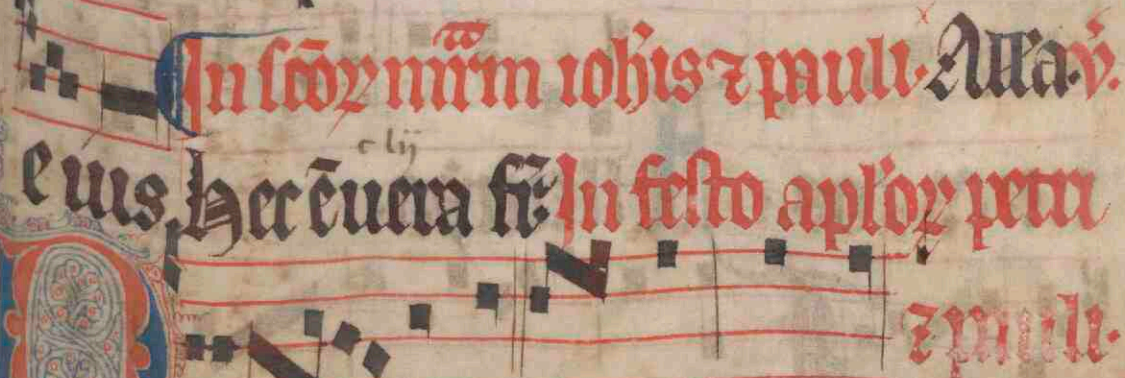 In sc̄oꝝ mr̄m ioh̄is ⁊ pauli. All'a. v̄.
eius. Hec ē uera fr̄. In festo apl'oꝝ petri
clij
⁊ pauli.